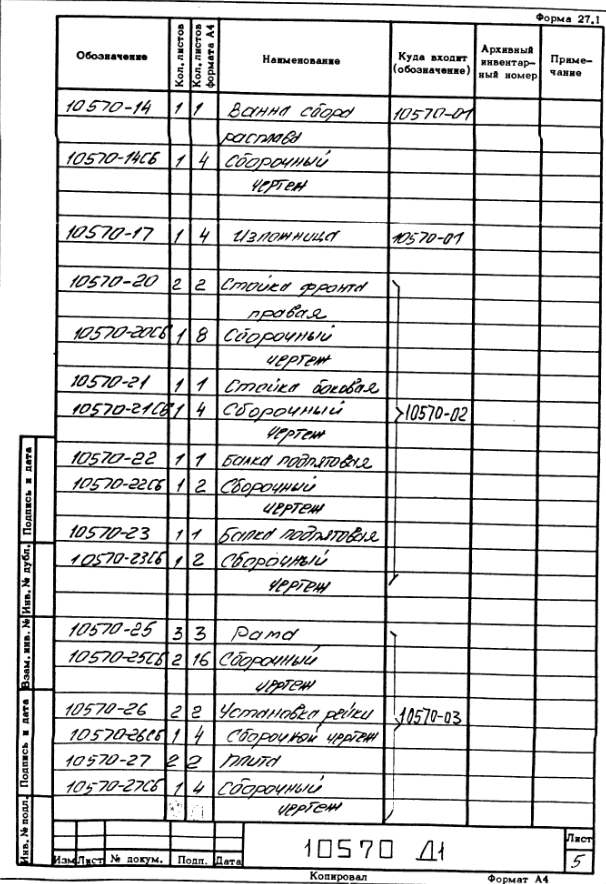 Форма 27.1
Обозначение Кол. листов Кол. листов формата А4 Наименование Куда входит (обозначение) Архивный инвентарный номер Примечание
10570-14 1 1 Ванна сбора 10570-01
расплава
10570-14СБ 1 4 Сборочный
чертеж
10570-17 1 4 Изложница 10570-01
10570-20 2 2 Стойка фронта
правая
10570-20СБ 1 8 Сборочный
чертеж
10570-21 1 1 Стойка боковая
10570-21СБ 1 4 Сборочный 10570-02
чертеж
10570-22 1 1 Балка подпятовая
10570-22СБ 1 2 Сборочный
чертеж
10570-23 1 1 Балка подпятовая
10570-23СБ 1 2 Сборочный
чертеж
10570-25 3 3 Рама
10570-25СБ 2 16 Сборочный
чертеж
10570-26 2 2 Установка рейки 10570-03
10570-26СБ 1 4 Сборочный чертеж
10570-27 2 2 Плита
10570-27СБ 1 4 Сборочный
чертеж
Подпись и дата
Инв. № дубл.
Взам. инв. №
Подпись и дата
Инв. № подл.
10570 Д1
Лист
5
Изм Лист № докум. Подп. Дата
Копировал Формат А4